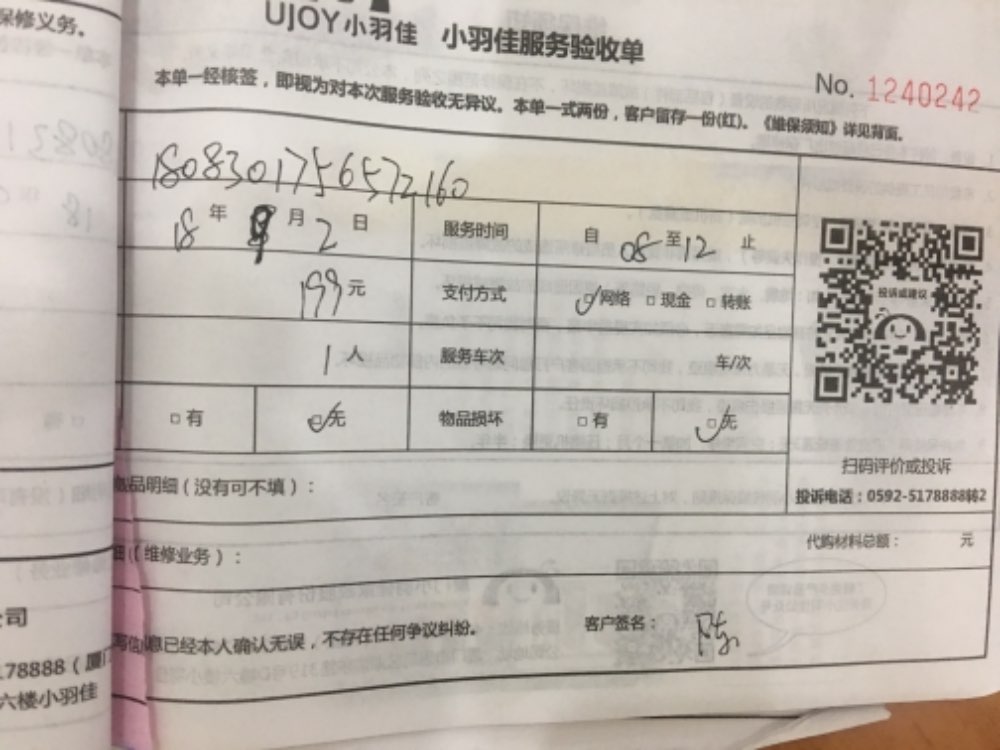 保修义务。
UJOY小羽佳 小羽佳服务验收单
No. 1240242
本单一经核签，即视为对本次服务验收无异议。本单一式两份，客户留存一份(红)。《维保须知》详见背面。
1808301756572160
18 年 9 月 2 日 服务时间 自 08 至 12 止
199 元 支付方式 网络 现金 转账
投诉或建议
1 人 服务车次 车/次
有 无 物品损坏 有 无
扫码评价或投诉
品明细（没有可不填）：
投诉电话：0592-5178888转2
（维修业务）：
代购材料总额： 元
息已经本人确认无误，不存在任何争议纠纷。
客户签名：
公司
178888（厦
六楼小羽佳